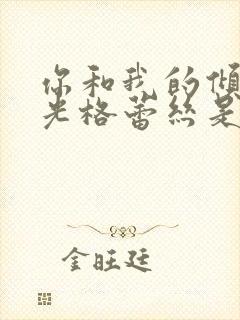 你和我的傾
光格蕾絲是
金旺廷